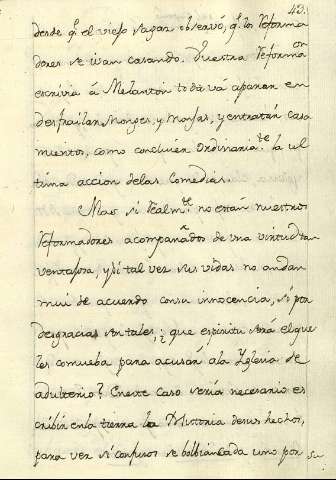 43.
desde qe. el viejo sagaz observó, qe. los Reforma
dores se ivan casando. Nuestra Reformaon
escrivia á Melanton todà và á parar en
desfrailar Monges, y Monjas, y entratan casa
mientos, como concluien ordinariamte. la ul
tima accion delas Comedias.
Mas si Realmte. no están nuestros
Reformadores acompañados de una virtud tan
ventajosa, y si tal vez sus vidas no andan
mui de acuerdo consu innocencia, si por
desgracia son tales; ¿que espiritu será el que
les comueba para acusar ála Yglesia de
adulterio? Eneste caso sería necesario es
cribir enla tierra la Historia desus hechos,
para ver si confusos se bolbian cada uno por su